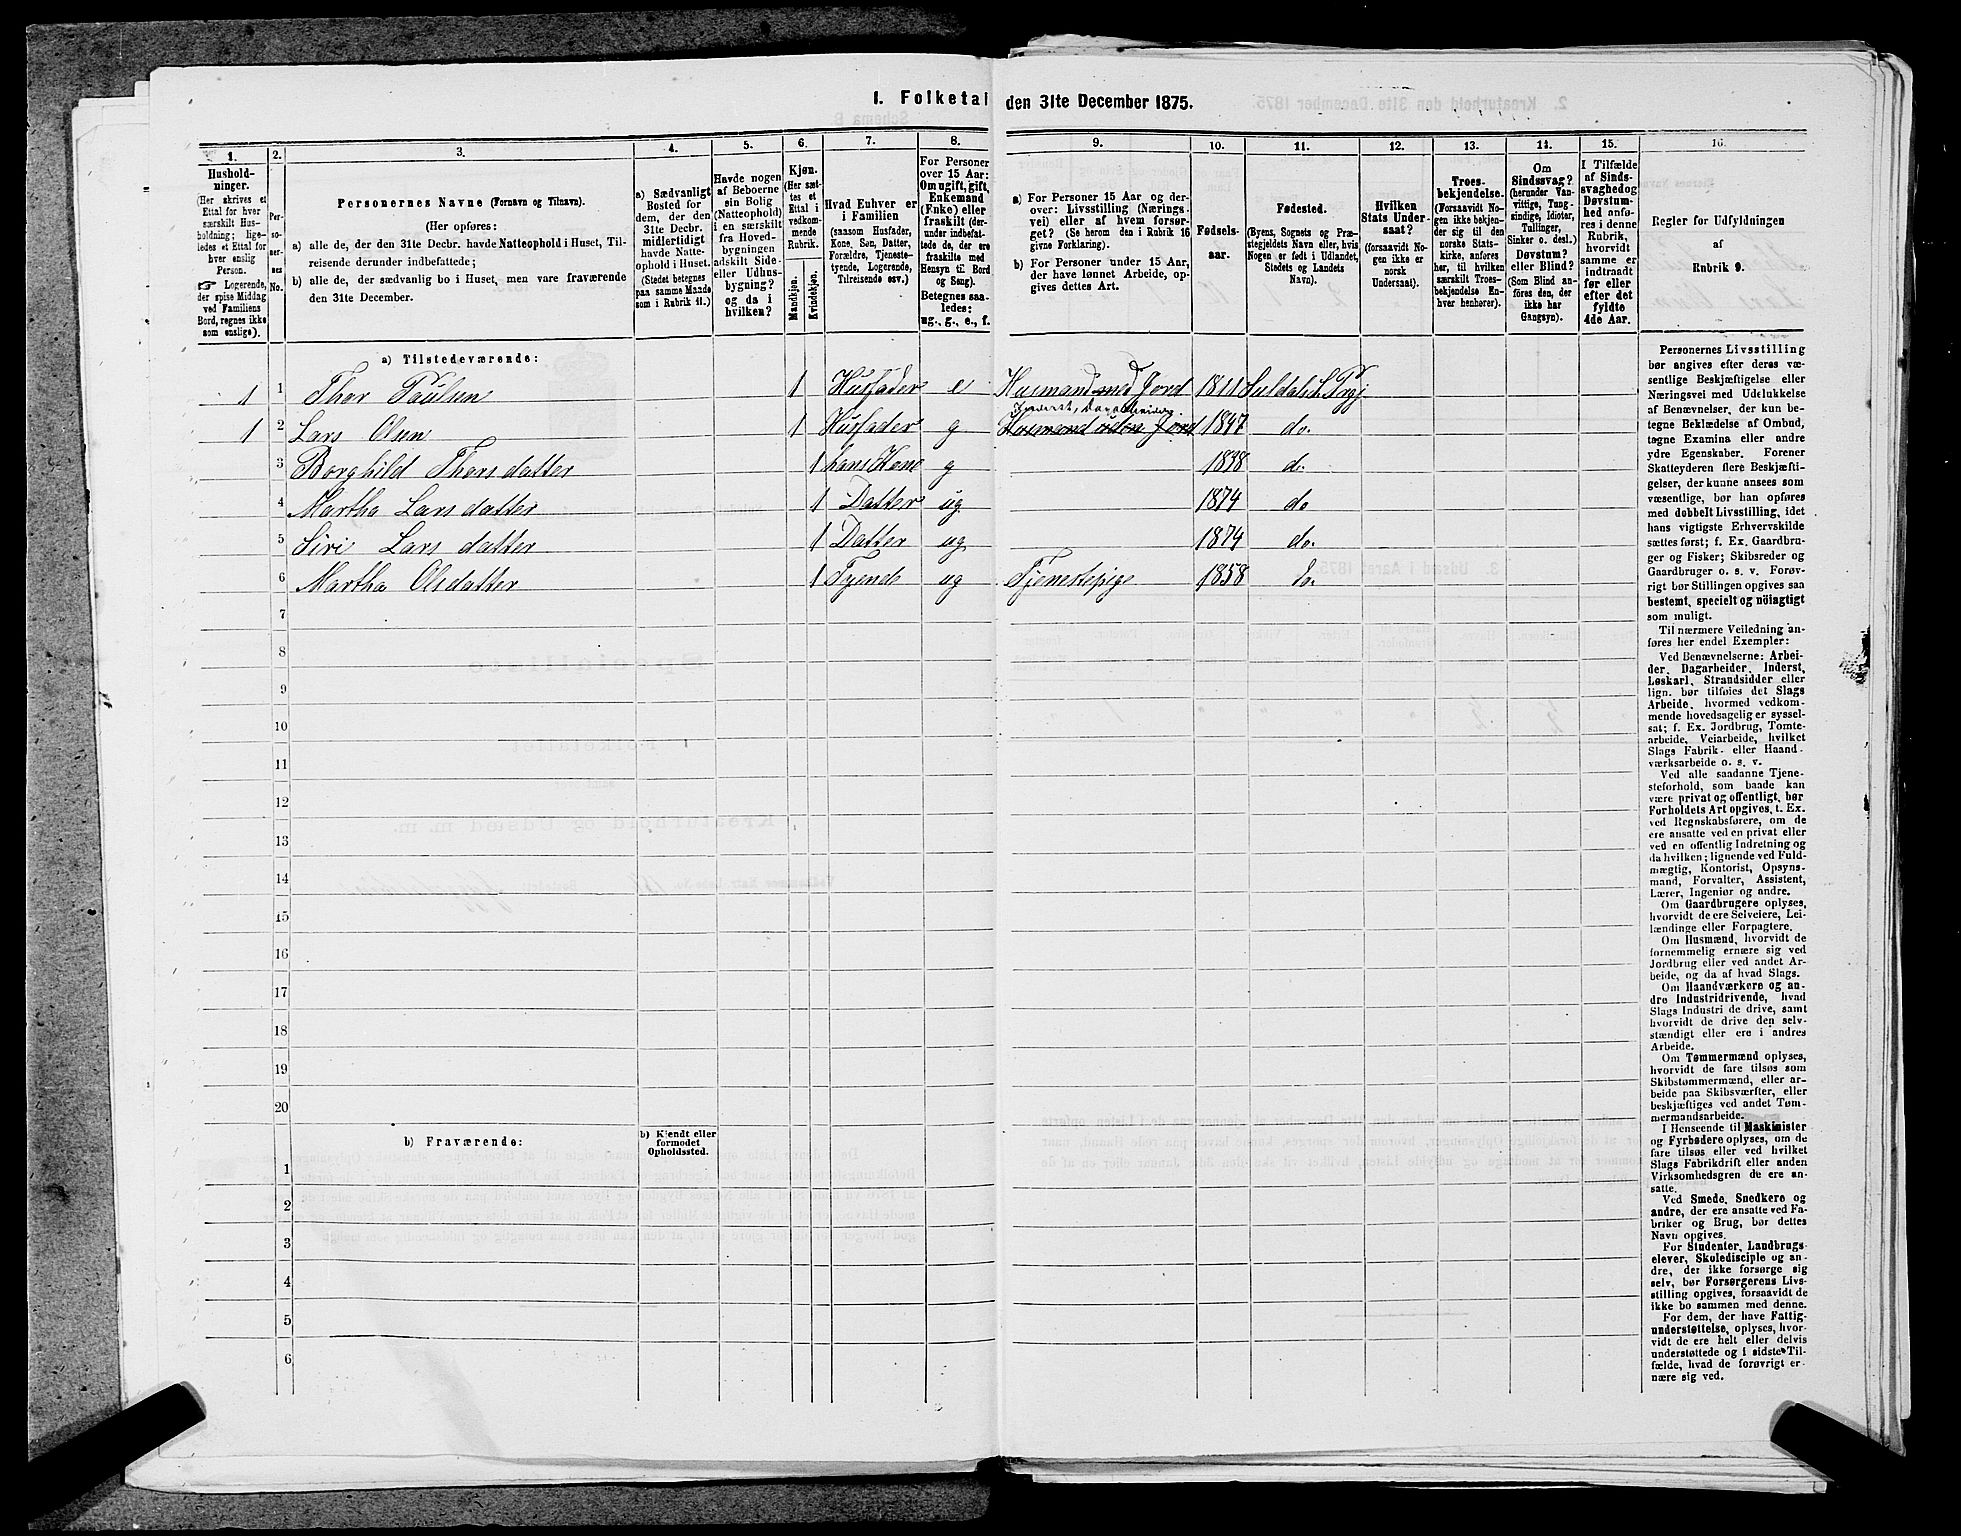 1. Folketal den 31te December 1875.
1.
2.
3.
4.
5.
6.
7.
8.
9.
10.
11.
12.
13.
14.
15.
16.
Hushold-
ninger.
(Her skrives et
Ettal for hver
særskilt Hus-
holdning; lige-
ledes et Ettal for
hver enslig
Person.
☞ Logerende,
der spise Middag
ved Familiens
Bord, regnes ikke
som enslige).
Per-
so-
ner-
nes
No.
Personernes Navne (Fornavn og Tilnavn).
(Her opføres:
a) alle de, der den 31te Decbr. havde Natteophold i Huset, Til-
reisende derunder indbefattede;
b) alle de, der sædvanlig bo i Huset, men vare fraværende
den 31te December.
a) Sædvanligt
Bosted for
dem, der den
31te Decbr.
midlertidigt
havde Natte-
ophold i Huset.
(Stedet betegnes
paa samme Maade
som i Rubrik 11.)
Havde nogen
af Beboerne
sin Bolig
(Natteophold)
i en særskilt
fra Hoved-
bygningen
adskilt Side-
eller Udhus-
bygning?
og da i
hvilken?
Kjøn.
(Her sæt-
tes et
Ettal i
vedkom-
mende
Rubrik.
Mandkjøn.
Kvindekjøn.
Hvad Enhver er
i Familien
(saasom Husfader,
Kone, Søn, Datter,
Forældre, Tjeneste-
tyende, Logerende,
Tilreisende osv.)
For Personer
over 15 Aar:
Om ugift, gift,
Enkemand
(Enke) eller
fraskilt (der-
under indbefat-
tede de, der ere
fraskilte med
Hensyn til Bord
og Seng).
Betegnes saa-
ledes:
ug., g., e., f.
a) For Personer 15 Aar og der-
over: Livsstilling (Nærings-
vei) eller af hvem forsør-
get? (Se herom den i Rubrik 16
givne Forklaring).
b) For Personer under 15 Aar,
der have lønnet Arbeide, op-
gives dettes Art.
Fødsels-
aar.
Fødested.
(Byens, Sognets og Præ-
stegjeldets Navn eller, hvis
Nogen er født i Udlandet,
Stedets og Landets
Navn).
Hvilken
Stats Under-
saat?
(forsaavidt No-
gen ikke er
norsk
Undersaat).
Troes-
bekjendelse.
(Forsaavidt No-
gen ikke bekjen-
der sig til den
norske Stats-
kirke, anføres
her, til hvilken
særskilt Troes-
bekjendelse En-
hver henhører).
Om
Sindssvag?
(herunder Van-
vittige, Tung-
sindige, Idioter,
Tullinger,
Sinker o. desl.)
Døvstum?
eller Blind?
(Som Blind an-
føres den, der
ikke har
Gangsyn).
I Tilfælde
af Sinds-
svaghed og
Døvstum-
hed anfø-
res i denne
Rubrik,
hvorvidt
samme er
indtraadt
før eller
efter det
fyldte
4de Aar.
Regler for Udfyldningen
af
Rubrik 9.
a) Tilstedeværende:
1 1 Thor Paulsen 1 Husfader e Husmand med Jord 1811 Suldals Prgj
Inderst, Dagarbeider.
1 2 Lars Olsen 1 Husfader g Husmand uden Jord 1847 do.
3 Borghild Thorsdatter 1 hans Kone g 1838 do.
4 Martha Larsdatter 1 Datter ug 1874 do
5 Siri Larsdatter 1 Datter ug 1874 do.
6 Martha Olsdatter 1 Tyende ug Tjenestepige 1858 do.
7
8
9
10
11
12
13
14
15
16
17
18
19
20
b) Fraværende:
b) Kjendt eller
formodet
Opholdssted.
1
2
3
4
5
6
Personernes Livsstilling
bør angives efter deres væ-
sentlige Beskjæftigelse eller
Næringsvei med Udelukkelse
af Benævnelser, der kun be-
tegne Beklædelse af Ombud,
tagne Examina eller andre
ydre Egenskaber. Forener
Skatteyderen flere Beskjæfti-
gelser, der kunne ansees som
væsentlige, bør han opføres
med dobbelt Livsstilling, idet
hans vigtigste Erhvervskilde
sættes først; f. Ex. Gaardbru-
ger og Fisker; Skibsreder og
Gaardbruger o. s. v. Forøv-
rigt bør Stillingen opgives saa
bestemt, specielt og nöiagtigt
som muligt.
Til nærmere Veiledning an-
føres her endel Exempler:
Ved Benævnelserne: Arbei-
der, Dagarbeider, Inderst,
Løskarl, Strandsidder eller
lign. bør tilføies det Slags
Arbeide, hvormed vedkom-
mende hovedsagelig er syssel-
sat; f. Ex. Jordbrug, Tomte-
arbeide, Veiarbeide, hvilket
Slags Fabrik- eller Haand-
værksarbeide o. s. v.
Ved alle saadanne Tjene-
steforhold, som baade kan
være privat og offentligt, bør
Forholdets Art opgives, t. Ex.
ved Regnskabsførere, om de
ere ansatte ved en privat eller
ved en offentlig Indretning og
da hvilken; lignende ved Fuld-
mægtig, Kontorist, Opsyns-
mand, Forvalter, Assistent,
Lærer, Ingeniør og andre.
Om Gaardbrugere oplyses,
hvorvidt de ere Selveiere, Lei-
lændinge eller Forpagtere.
Om Husmænd, hvorvidt de
fornemmelig ernære sig ved
Jordbrug eller ved andet Ar-
beide, og da af hvad Slags.
Om Haandværkere og an-
dre Industridrivende, hvad
Slags Industri de drive, samt
hvorvidt de drive den selv-
stændigt eller ere i andres
Arbeide.
Om Tømmermænd oplyses,
hvorvidt de fare tilsøs som
Skibstømmermænd, eller ar-
beide paa Skibsværfter, eller
beskjæftiges ved andet Tøm-
mermandsarbeide.
I Henseende til Maskinister
og Fyrbødere oplyses, om de
fare tilsøs eller ved hvilket
Slags Fabrikdrift eller anden
Virksomhedsgren de ere an-
satte.
Ved Smede, Snedkere og
andre, der ere ansatte ved Fa-
briker og Brug, bør dettes
Navn opgives.
For Studenter, Landbrugs-
elever, Skoledisciple og an-
dre, der ikke forsørge sig
selv, bør Forsørgerens Livs-
stilling opgives, forsaavidt de
ikke bo sammen med denne.
For dem, der have Fattig-
understøttelse, oplyses, hvor-
vidt de ere helt eller delvis
understøttede og i sidste Til-
fælde, hvad de forøvrigt er-
nære sig ved.